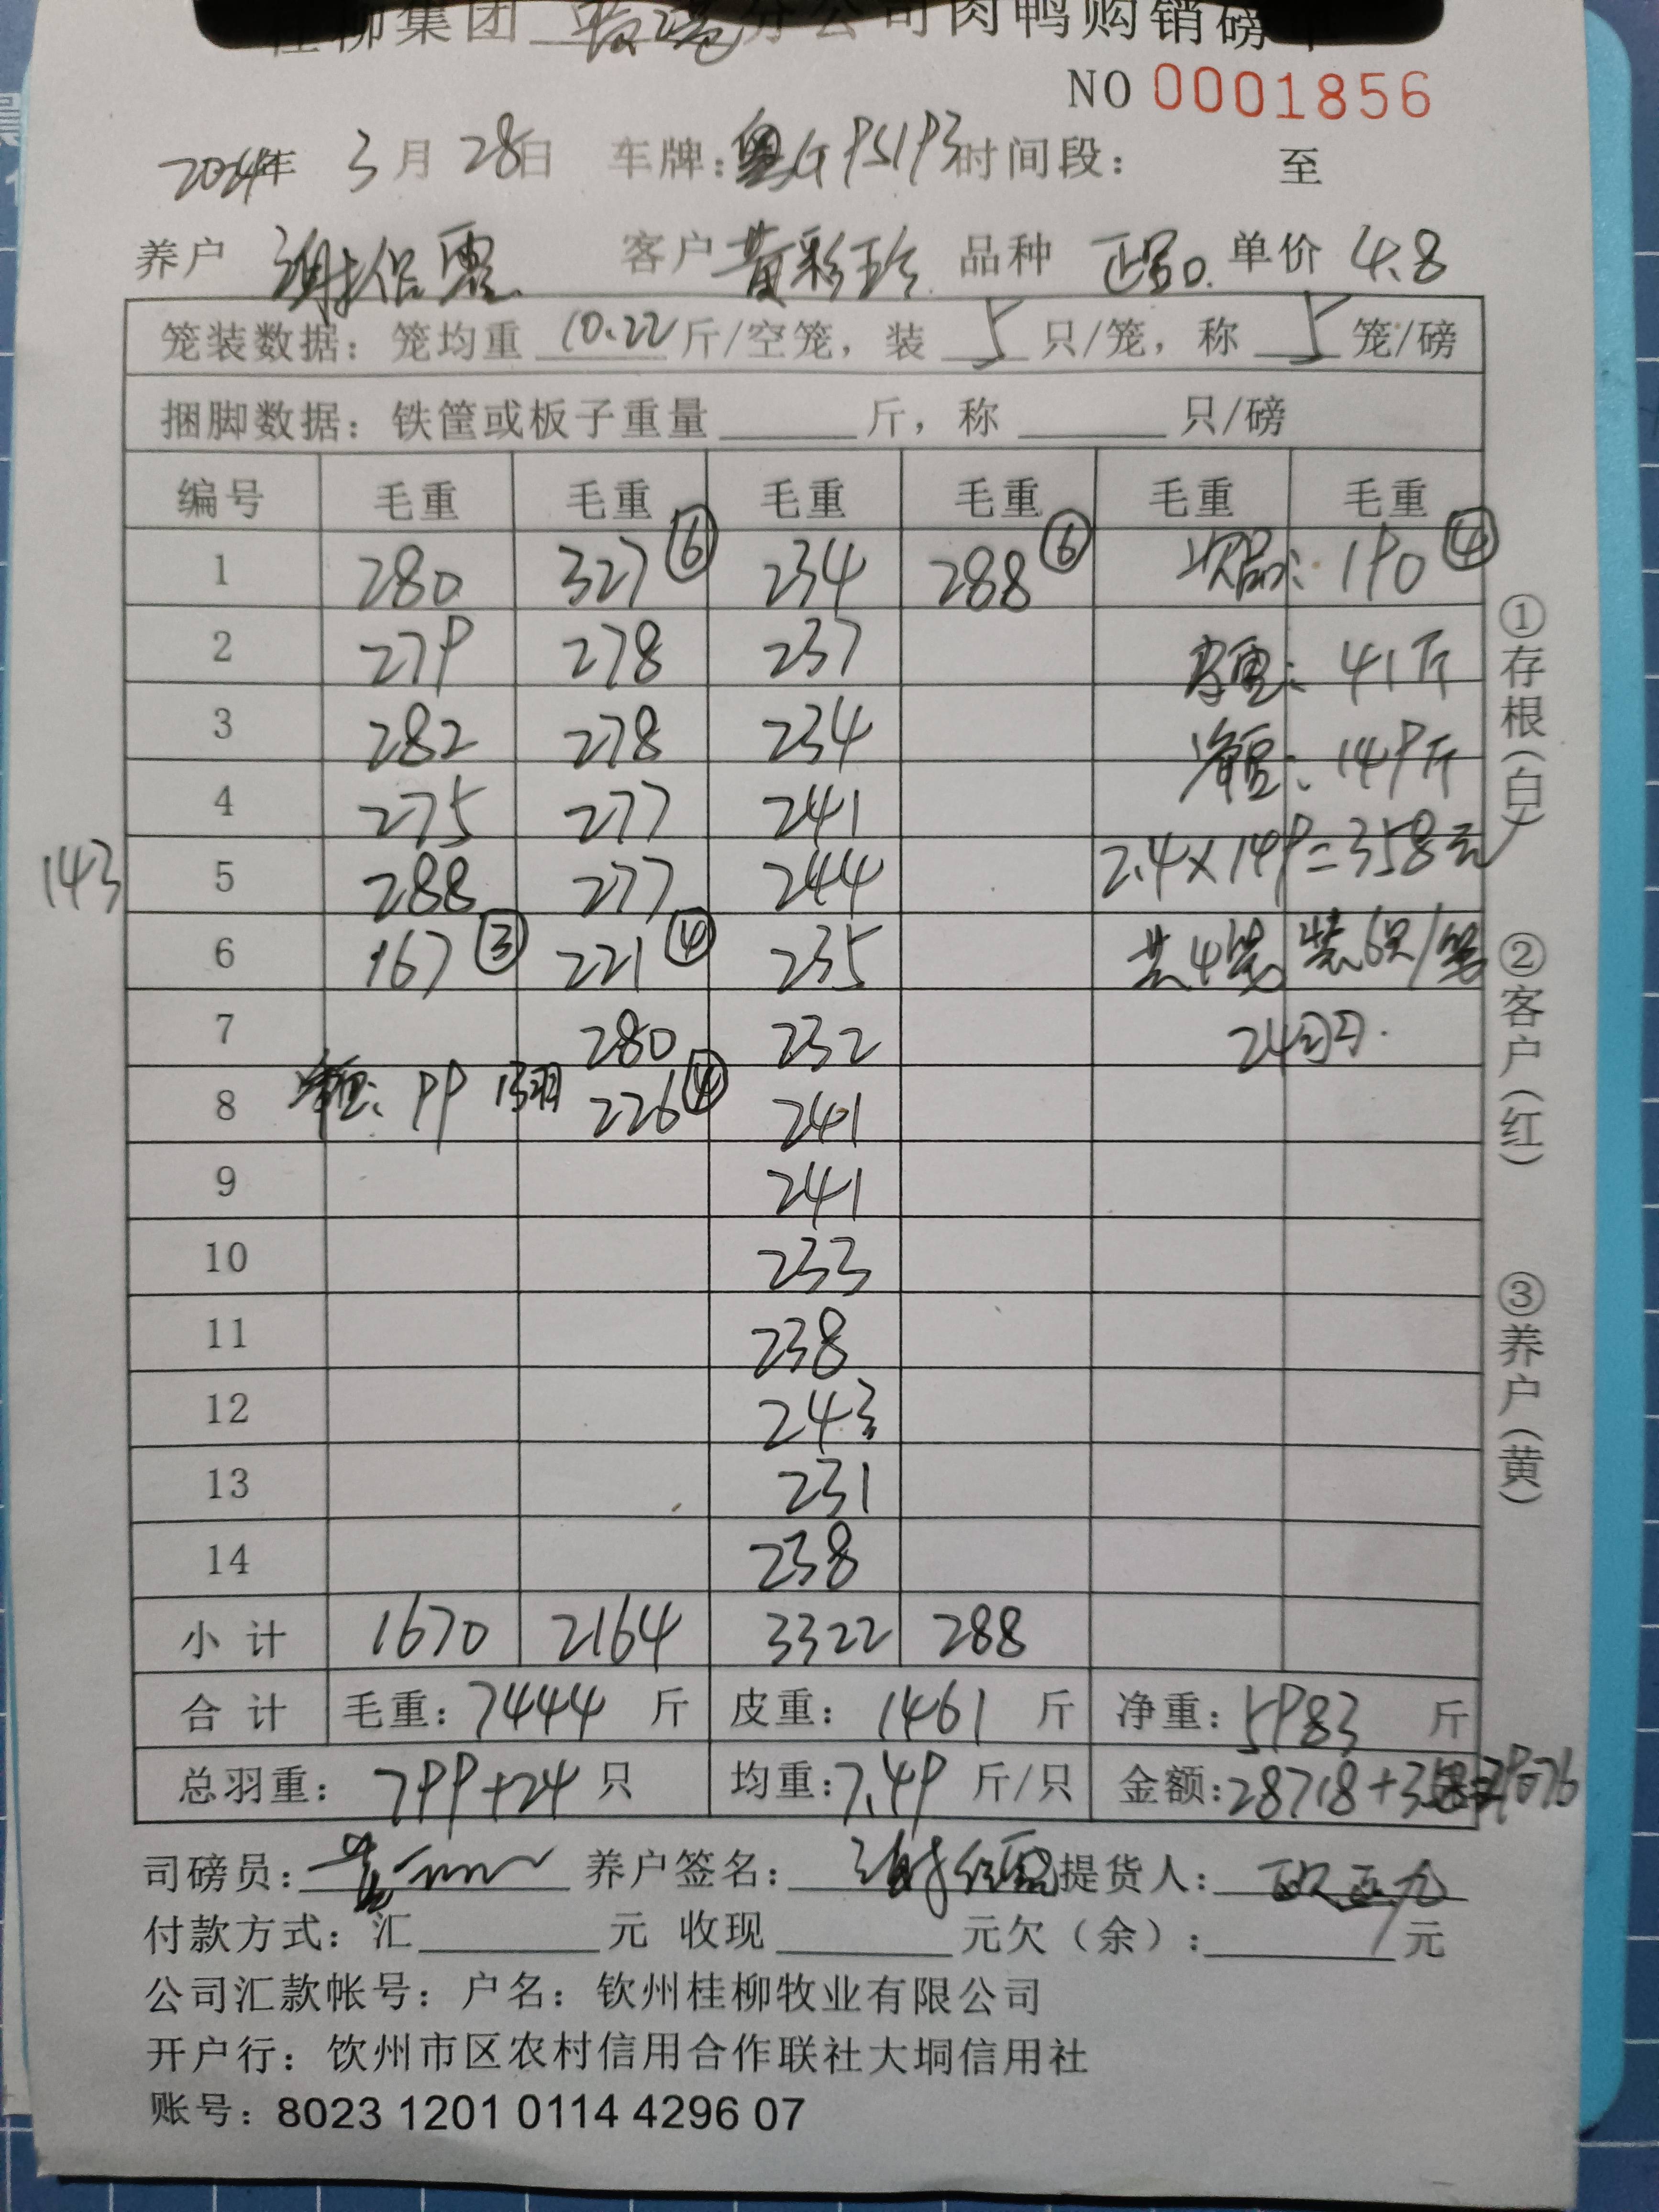 桂柳集团 分公司肉鸭购销磅单
NO 0001856
2024年 3月28日 车牌:粤G 9S193 时间段: 至
养户 谢 客户 黄彩珍 品种 正品 单价 4.8
笼装数据: 笼均重 10.22 斤/空笼, 装 5 只/笼, 称 5 笼/磅
捆脚数据: 铁筐或板子重量 斤, 称 只/磅
编号 毛重 毛重 毛重 毛重 毛重 毛重
1 280 327⑥ 234 288⑥ 次品: 190④
2 279 278 237 皮重: 41斤
3 282 278 234 净重: 149斤
4 275 277 241
143 5 288 277 244 2.4×149=358元
6 167③ 221④ 235 共4笼 装6只/笼
7 280 232 24羽.
8 净重: 99 15羽 226④ 241
9 241
10 233
11 238
12 243
13 231
14 238
小计 1670 2164 3322 288
合计 毛重: 7444 斤 皮重: 1461 斤 净重: 5983 斤
总羽重: 799+24 只 均重: 7.49 斤/只 金额: 28718+358=29076
司磅员: 养户签名: 谢 提货人:
付款方式: 汇 元 收现 元欠(余): 元
公司汇款帐号: 户名: 钦州桂柳牧业有限公司
开户行: 饮州市区农村信用合作联社大垌信用社
账号: 8023 1201 0114 4296 07
①存根(白)
②客户(红)
③养户(黄)